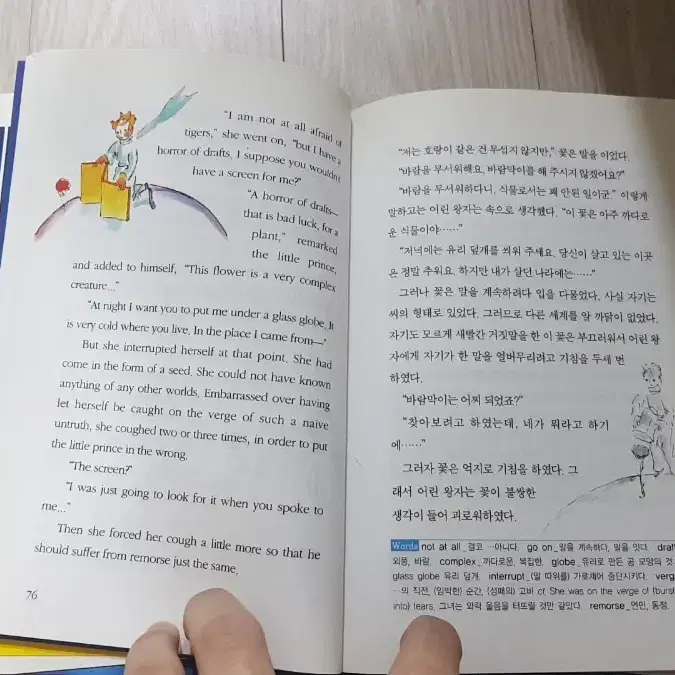 "I am not at all afraid of
tigers," she went on, "but I have a
horror of drafts. I suppose you wouldn't
have a screen for me?"
"A horror of drafts—
that is bad luck, for a
plant," remarked
the little prince,
and added to himself, "This flower is a very complex
creature..."
"At night I want you to put me under a glass globe. It
is very cold where you live. In the place I came from—"
But she interrupted herself at that point. She had
come in the form of a seed. She could not have known
anything of any other worlds. Embarrassed over having
let herself be caught on the verge of such a naive
untruth, she coughed two or three times, in order to put
the little prince in the wrong.
"The screen?"
"I was just going to look for it when you spoke to
me..."
Then she forced her cough a little more so that he
should suffer from remorse just the same.
76
"저는 호랑이 같은 건 무섭지 않지만," 꽃은 말을 이었다.
"바람을 무서워해요. 바람막이를 해 주시지 않겠어요?"
"바람을 무서워하다니, 식물로서는 꽤 안된 일이군." 이렇게
말하고는 어린 왕자는 속으로 생각했다. "이 꽃은 아주 까다로
운 식물이야……"
"저녁에는 유리 덮개를 씌워 주세요. 당신이 살고 있는 이곳
은 정말 추워요. 하지만 내가 살던 나라에는……"
그러나 꽃은 말을 계속하려다 입을 다물었다. 사실 자기는
씨의 형태로 있었다. 그러므로 다른 세계를 알 까닭이 없었다.
자기도 모르게 새빨간 거짓말을 한 이 꽃은 부끄러워서 어린 왕
자에게 자기가 한 말을 얼버무리려고 기침을 두세 번
하였다.
"바람막이는 어찌 되었죠?"
"찾아보려고 하였는데, 네가 뭐라고 하기
에……"
그러자 꽃은 억지로 기침을 하였다. 그
래서 어린 왕자는 꽃이 불쌍한
생각이 들어 괴로워하였다.
Words not at all_결코 …아니다. go on_말을 계속하다, 말을 잇다. draft
외풍, 바람. complex_까다로운, 복잡한. globe_유리로 만든 공 모양의 것.
glass globe 유리 덮개. interrupt_(말 따위를) 가로채어 중단시키다. verge
…의 직전, (임박한) 순간, (성패의) 고비 cf. She was on the verge of (burst
into) tears. 그녀는 와락 울음을 터뜨릴 것만 같았다. remorse_연민, 동정.